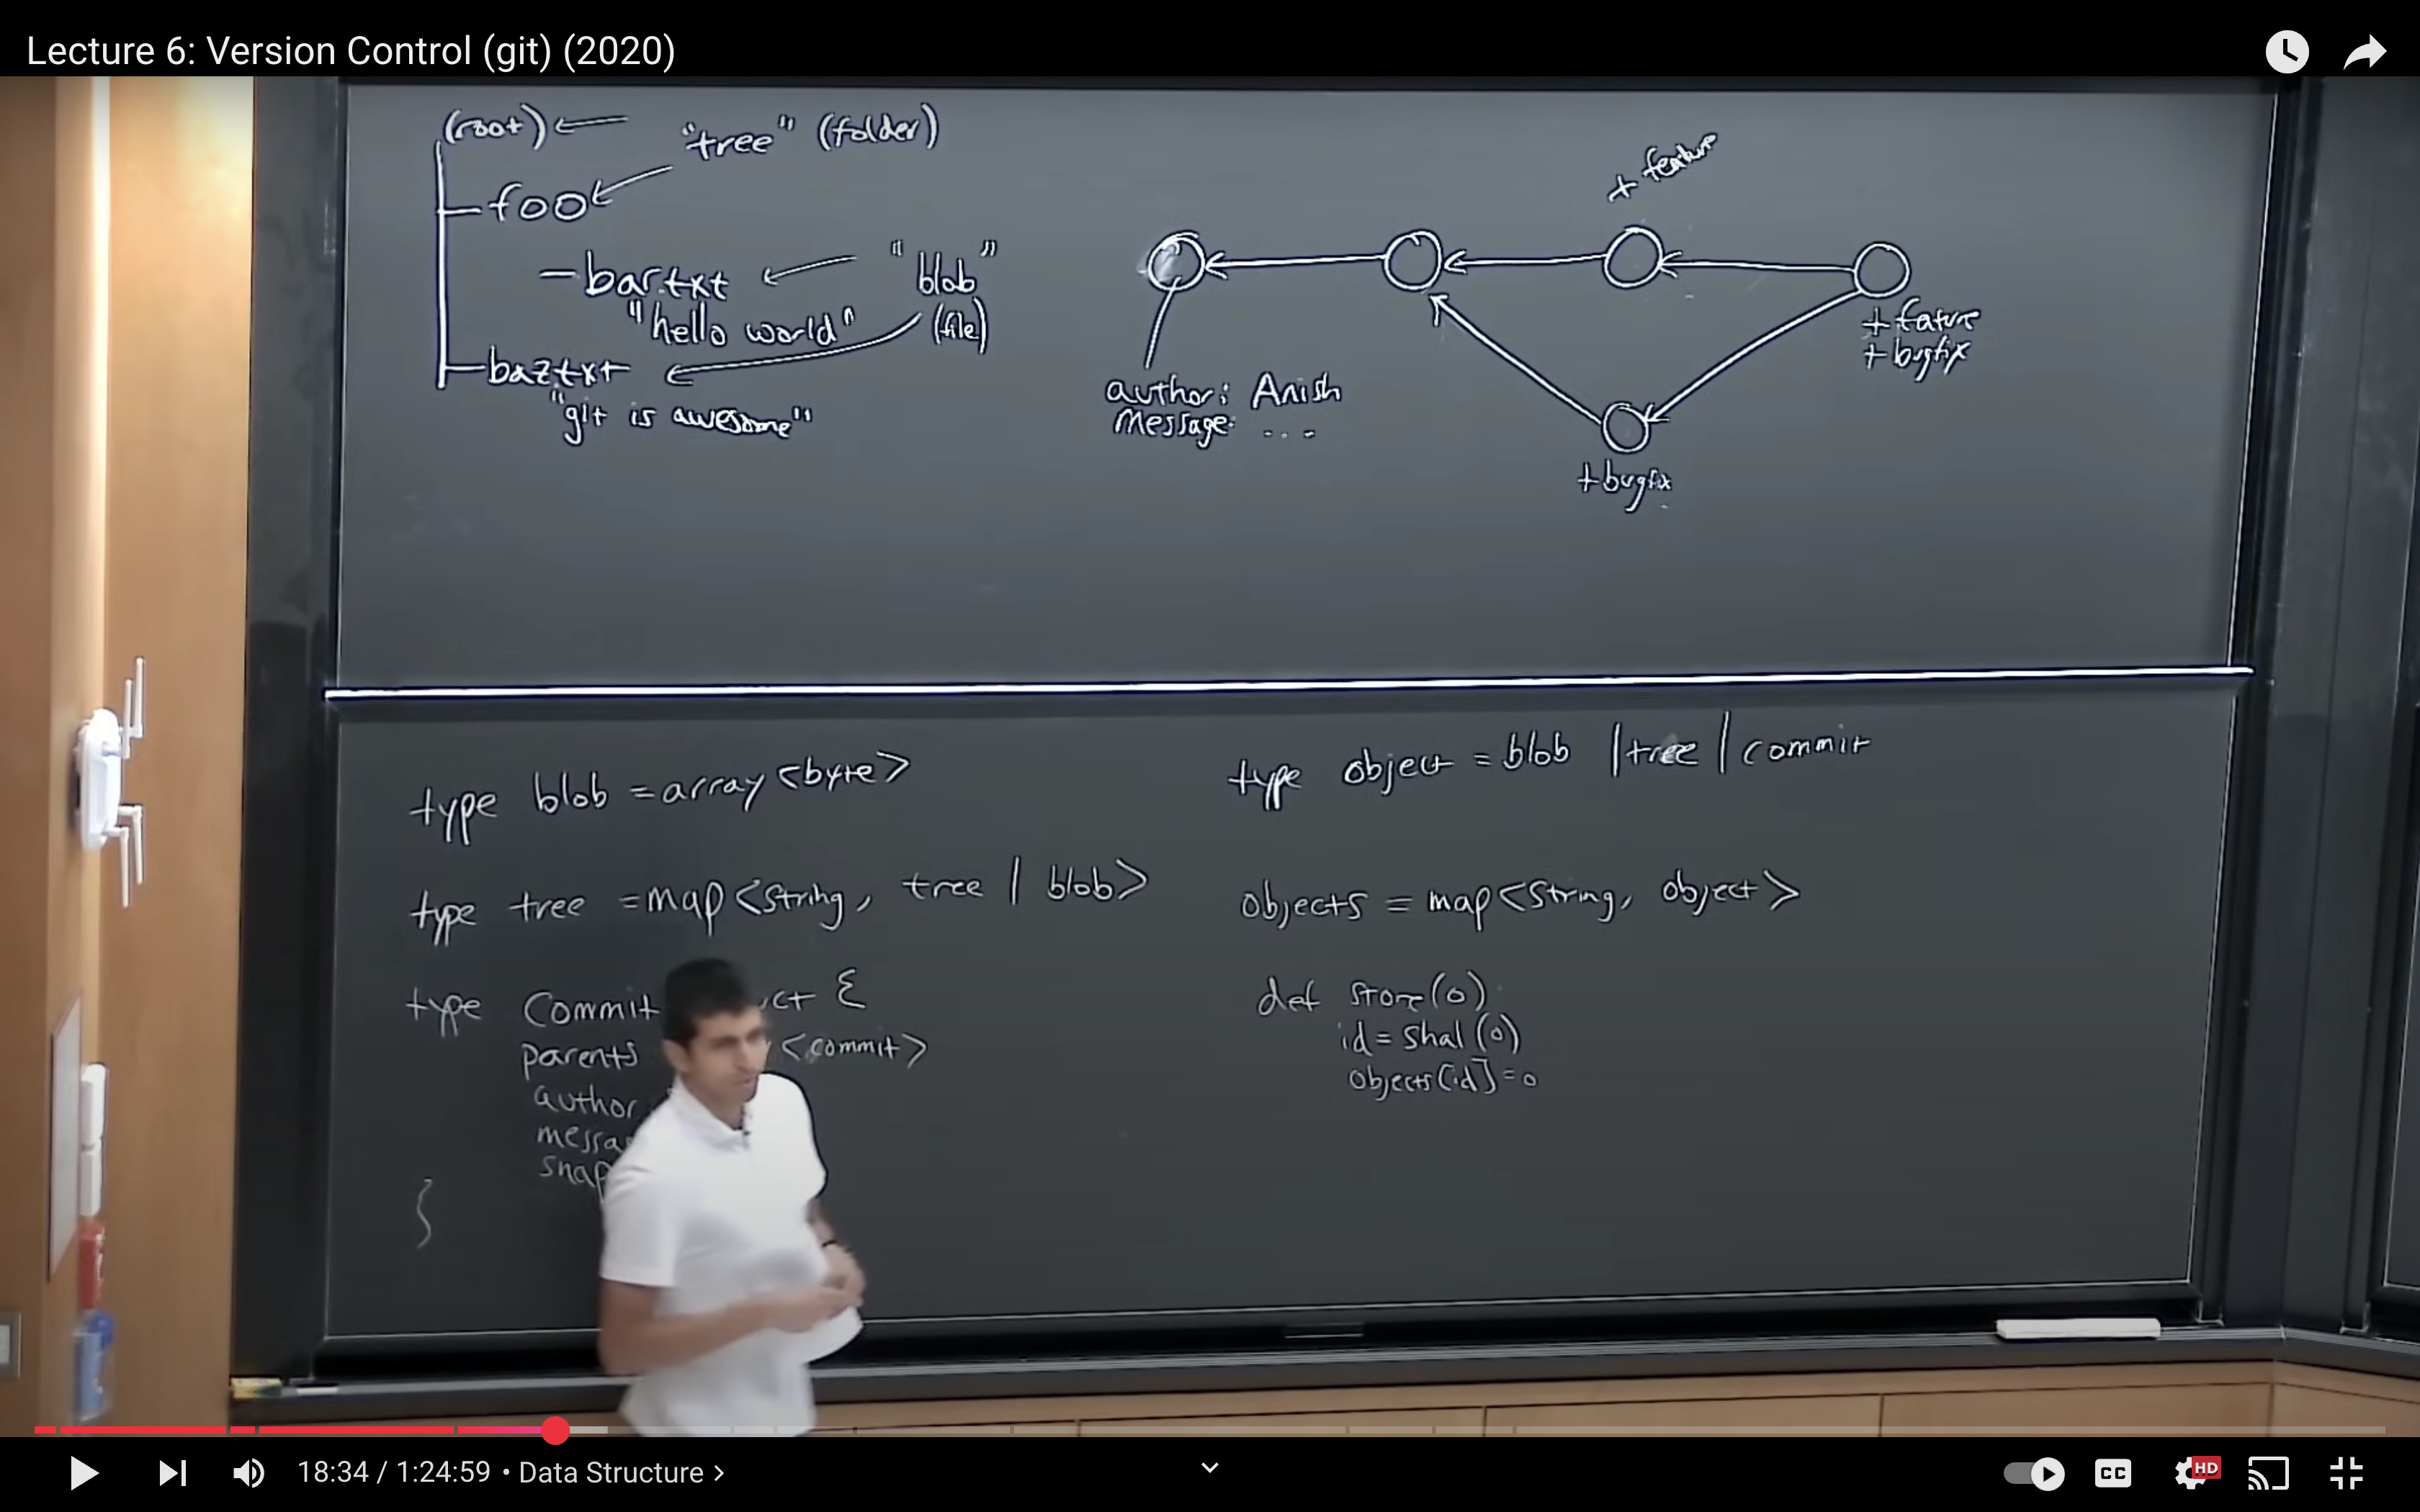 Lecture 6: Version Control (git) (2020)
(root)
"tree" (folder)
foo
bar.txt
"blob"
(file)
"hello world"
baz.txt
"git is awesome"
+ feature
+ fature
+ bugfix
author: Anish
message: ...
+bugfix
type blob = array <byte>
type tree = map <string, tree | blob>
type commit
ct {
parents
<commit>
author
messa
snap
}
type object = blob | tree | commit
objects = map <string, object>
def store(o)
id = sha1 (o)
objects[id] = o
18:34 / 1:24:59 • Data Structure >
CC
HD